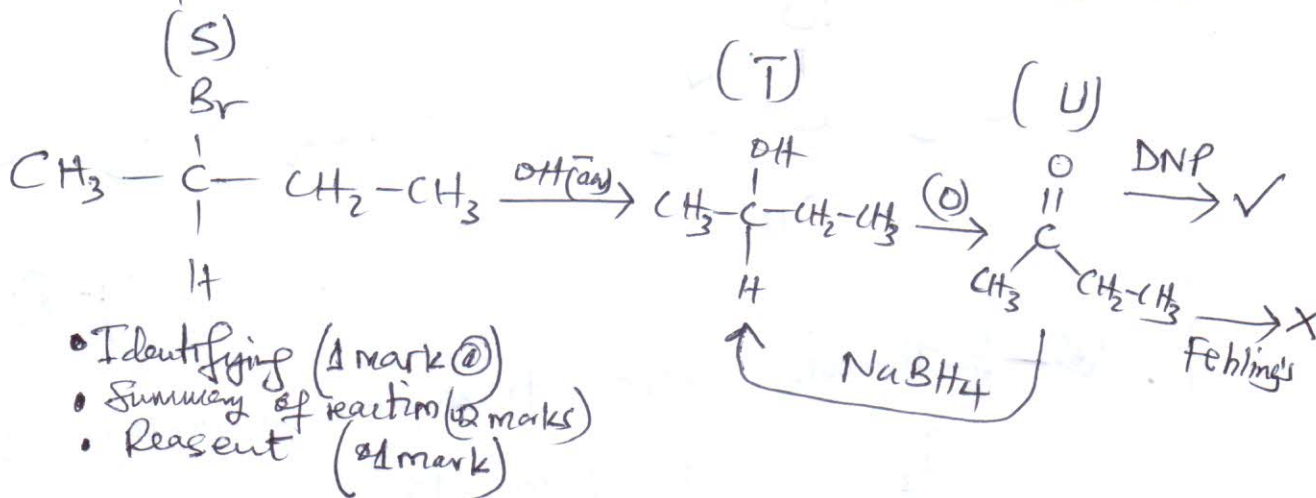 (S)
Br
CH3 — C — CH2 — CH3
H
OH⁻(aq)
(T)
OH
CH3-C-CH2-CH3
H
(O)
(U)
O
C
CH3 CH2-CH3
DNP
✓
Fehling's
X
NaBH4
• Identifying (1 mark @)
• Summary of reaction (02 marks)
• Reagent (01 mark)